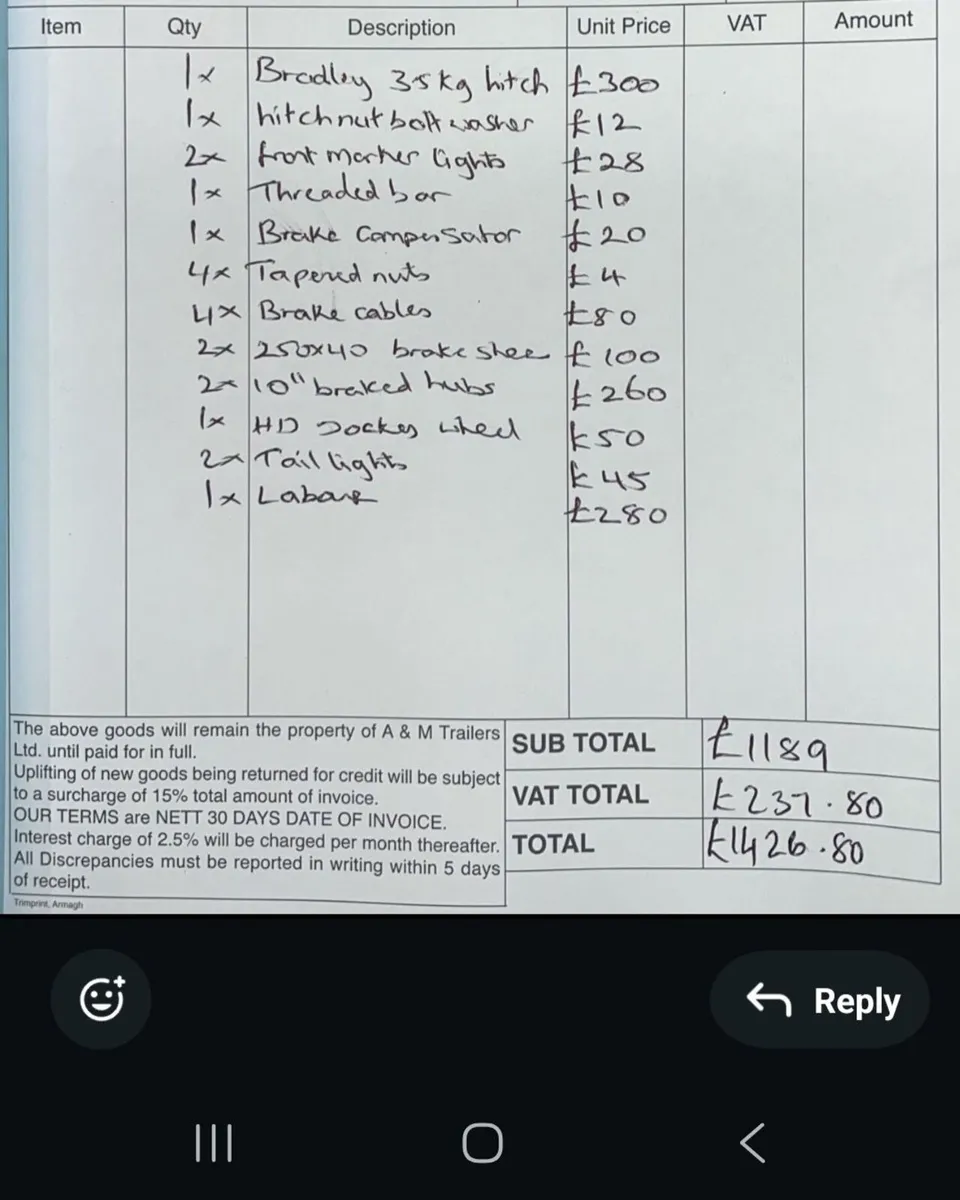 Item Qty Description Unit Price VAT Amount
1x Bradley 35kg hitch £300
1x hitch nut bolt washer £12
2x front marker lights £28
1x Threaded bar £10
1x Brake Compensator £20
4x Tapered nuts £4
4x Brake cables £80
2x 250x40 brake shoe £100
2x 10" braked hubs £260
1x HD Jockey wheel £50
2x Tail lights £45
1x Labour £280
The above goods will remain the property of A & M Trailers
Ltd. until paid for in full.
Uplifting of new goods being returned for credit will be subject
to a surcharge of 15% total amount of invoice.
OUR TERMS are NETT 30 DAYS DATE OF INVOICE.
Interest charge of 2.5% will be charged per month thereafter.
All Discrepancies must be reported in writing within 5 days
of receipt.
SUB TOTAL £1189
VAT TOTAL £237.80
TOTAL £1426.80
Trimprint, Armagh
Reply